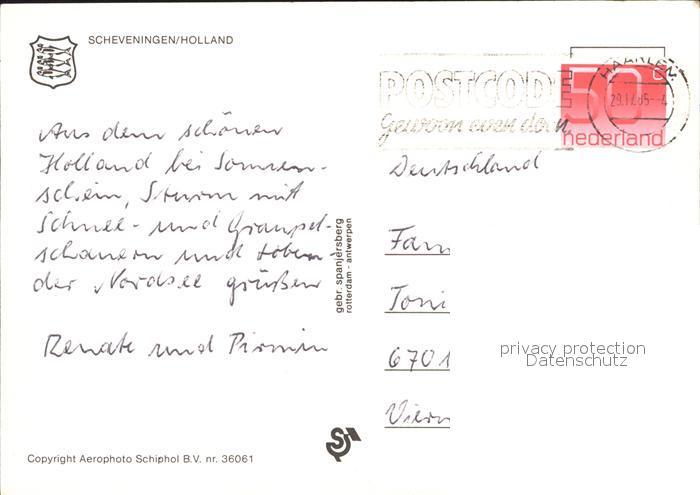 SCHEVENINGEN/HOLLAND
HAARLEM
POSTCODE
50 c
Gewoon even doen
nederland
Aus dem schönen
Holland bei Sonnen-
schein, Sturm mit
Schnee- und Graupel-
schauern und toben-
der Nordsee grüßen
Renate und Pirmin
Deutschland
Fam
Toni
6701
gebr. spanjersberg
rotterdam - antwerpen
privacy protection
Datenschutz
Copyright Aerophoto Schiphol B.V. nr. 36061